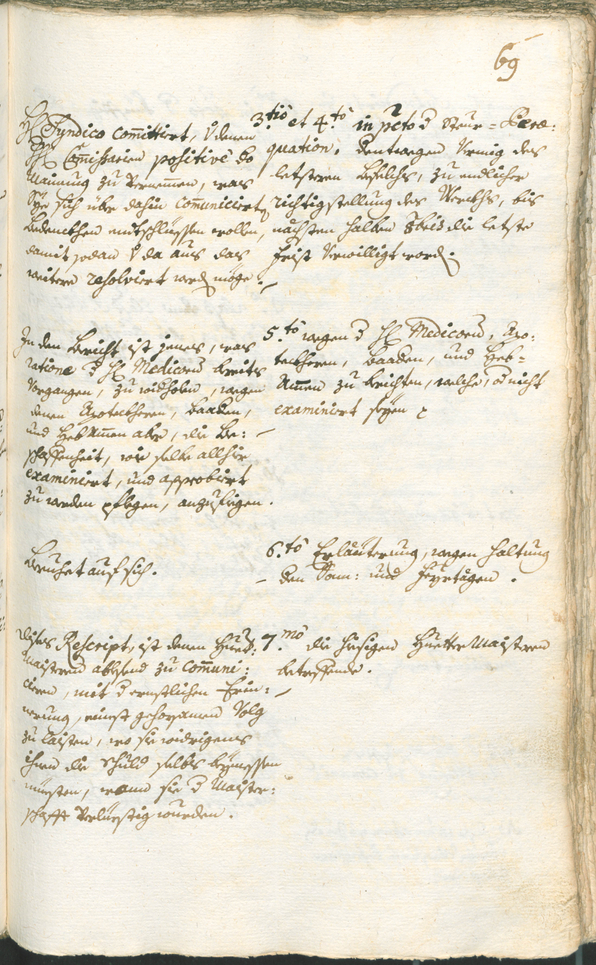 69
H: Syndico com̄ittirt, v̈ denen
H: Com̄issarien positivè do
Mainung zu vernem̄en, was
Sye sich über dahin com̄uniciert
bedenckhen entschlüssen wollen,
damit sodan v̈ da aus das
weitere resolvirt werdē möge.
3.tiò et 4.tò in pcto d Steur-Peræ:
quation: dentwegen vermög des
letsteren befelchs, zu endlicher
richtigstellung des Werckhs, bis
nächsten halben die letste
frist verwilligt wordē.
In den bericht ist jenes, was
ratione d H: Medicorū bereits
vorgangen, zu widholen, wegen
denen Apoteckheren, baadern,
und HebAm̄en aber, die be:
schaffenheit, wie selbe allhier
examiniert, und approbiert
zu werden pflegen, anzufiegen.
5.tò wegen d H: Medicorū, Apo:
teckheren, baadern, und Heb-
Am̄en zu berichten, welche, od nicht
examiniert seyen
beruhet auf sich.
6.tò Erläuterung, wegen haltung
den Son̄: und Feyrtägen.
dises Rescript, ist denen Huett:
maistern ablesend zu com̄uni:
cieren, mit d ernstlichen Erin:
nerung, einest gehorsamen Volg
zu laisten, wo sie widrigens
ihnen die schuld selbst beymessen
müesten, wann sie d Maister:
schafft verlurstig wurden.
7.mò die hiesigen HuetterMaistern
betreffende.